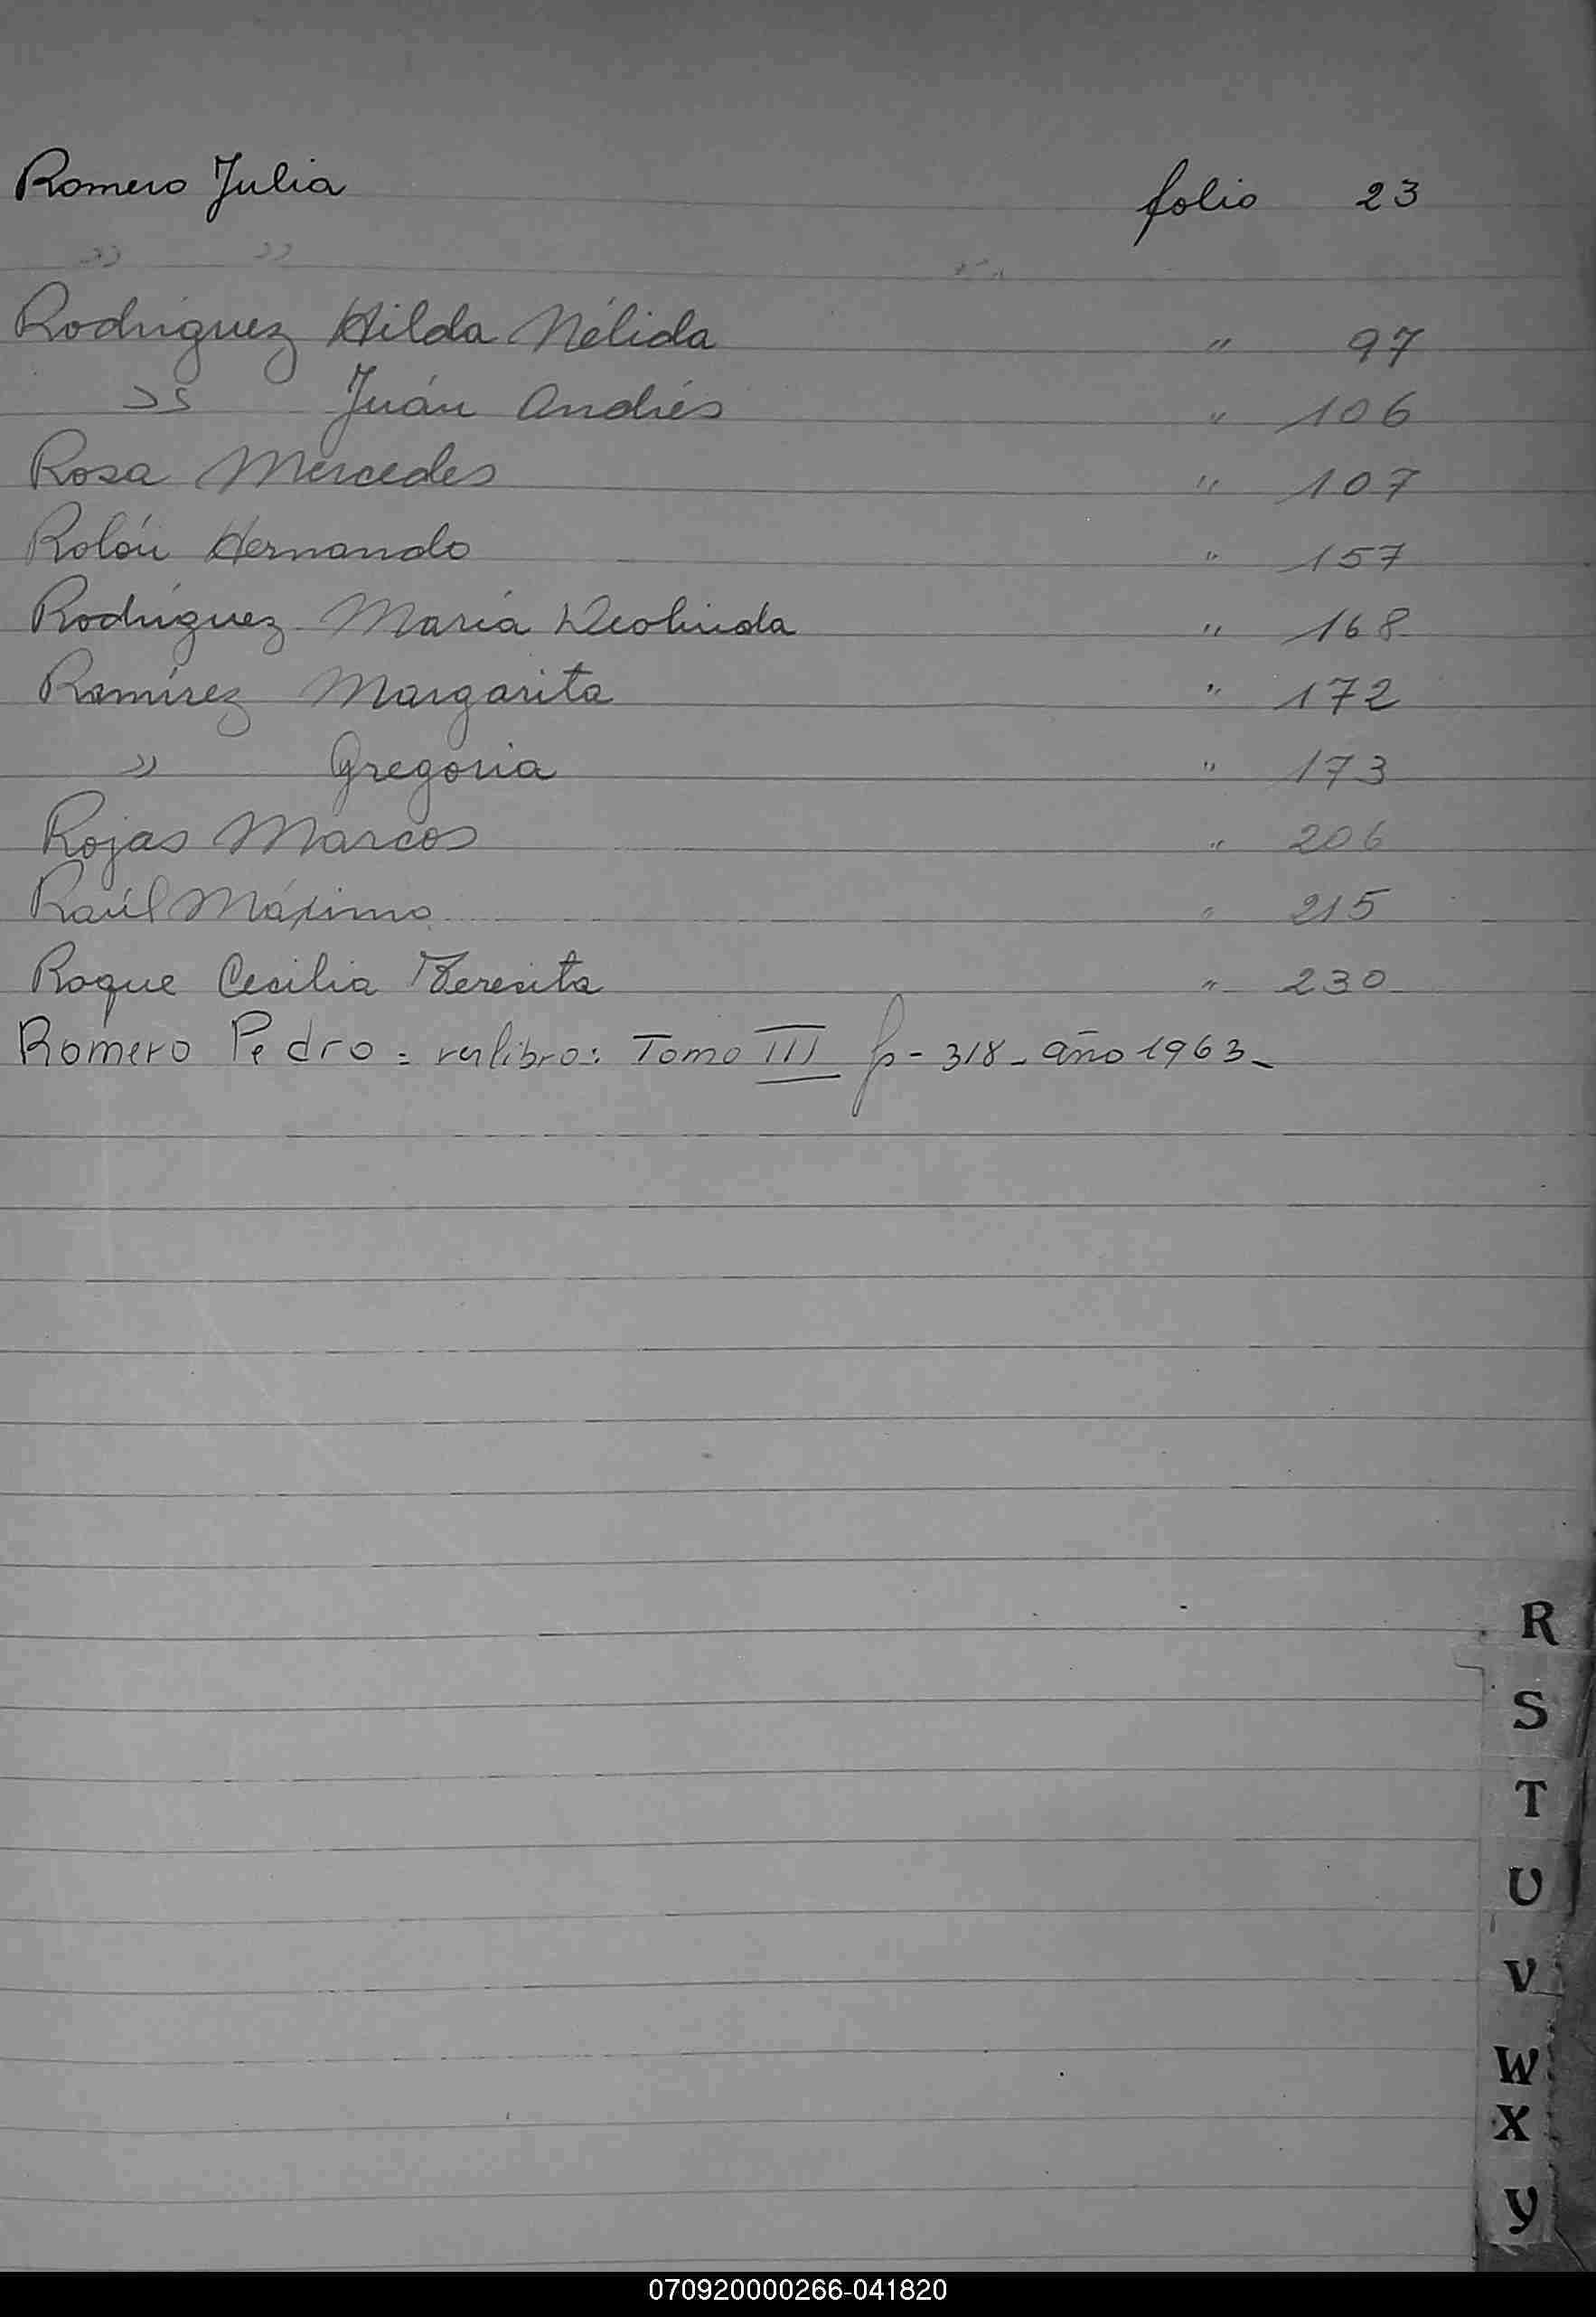 Romero Julia folio 23
" "
Rodríguez Hilda Nélida " 97
" Juán Andrés " 106
Rosa Mercedes " 107
Rolón Hernando " 157
Rodríguez María Deolinda " 168
Ramírez Margarita " 172
" Gregoria " 173
Rojas Marcos " 206
Raúl Máximo " 215
Roque Cecilia Teresita " 230
Romero Pedro = libro: Tomo III f- 318 - año 1963 -
R
S
T
U
V
W
X
Y
070920000266-041820